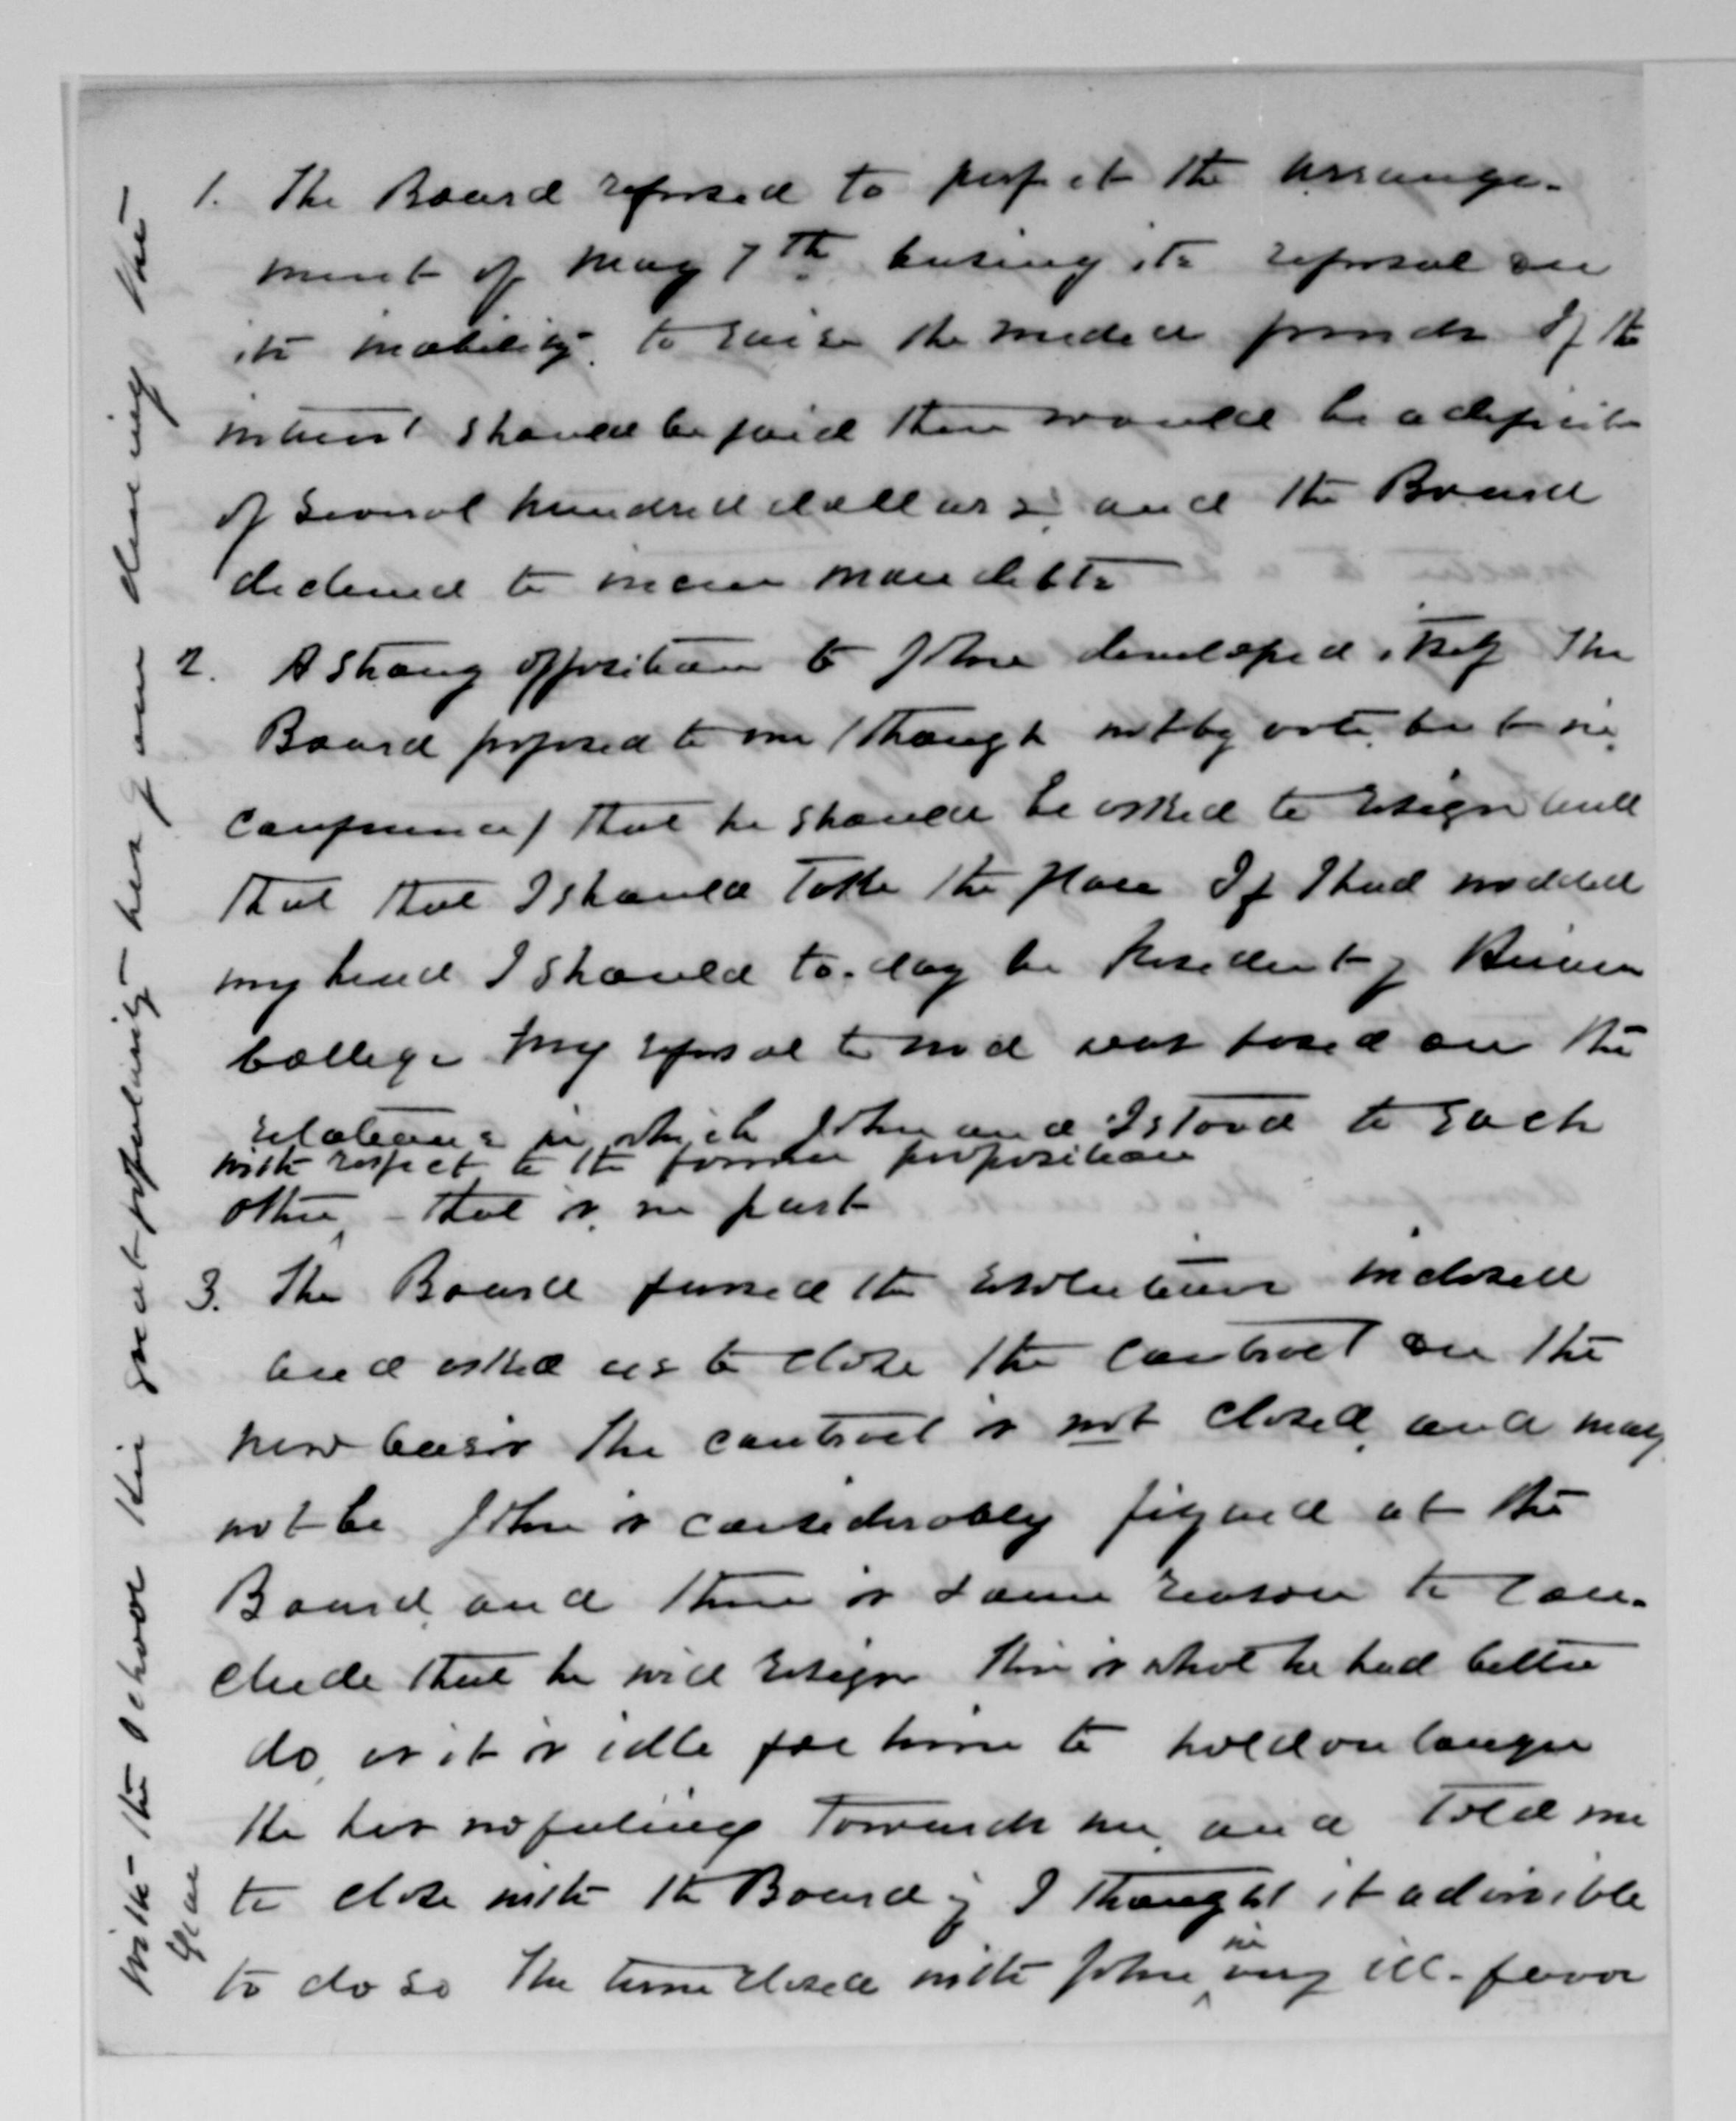 1. The Board refused to perfect the arrange-
ment of May 7th basing its refusal on
its inability to raise the needed funds If the
interest should be paid there would be a deficit
of several hundred dollars and the Board
declined to incur more debts
2. A strong opposition to John developed itself The
Board proposed to me (though not by vote, but in
conference) that he should be asked to resign and
that that I should take the place If I had nodded
my head I should to-day be President of Hiram
College My refusal to nod was based on the
relations in which John and I stood to each
with respect to the former proposition
other, - that is in part
3. The Board passed the resolutions inclosed
and asked us to close the contract on the
new basis The contract is not closed, and may
not be John is considerably at the
Board, and there is some reason to con-
clude that he will resign This is what he had better
do, as it is idle for him to hold on longer
He has no feeling towards me, and told me
to close with the Board if I thought it advisible
to do so The term closed with John in very ill-favor
with the school His great popularity has gone during the
year